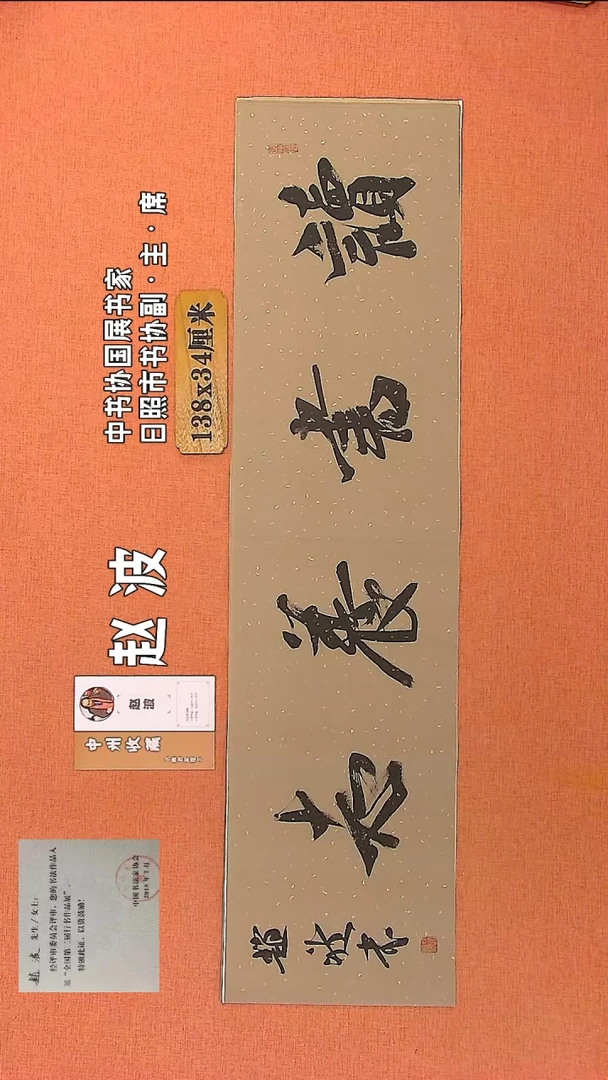 中书协国展书家
日照市书协副·主·席
138x34厘米
赵 波
赵 波
中州收藏
趙 波 先生/女士:
经评审委员会评审,您的书法作品入
展“全国第二届行书作品展”。
特颁此证,以资鼓励!
中国书法家协会
讀書養志
趙波书